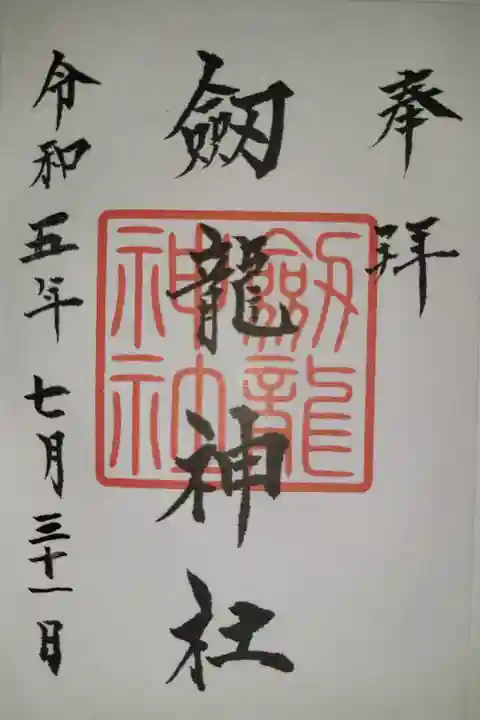 奉拝
劔龍神社
劔龍神社
令和五年七月三十一日